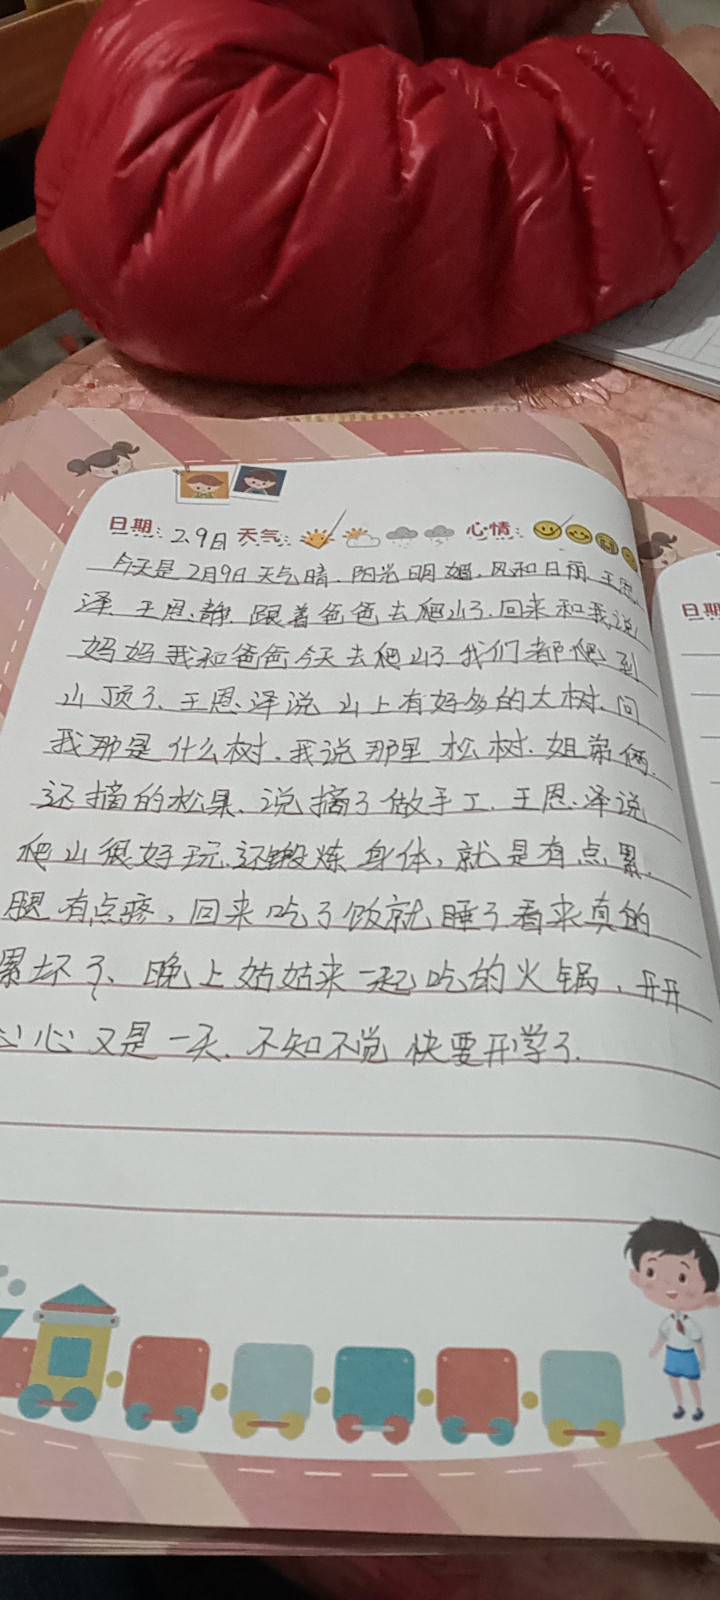 日期：2.9日 天气： 心情：
今天是2月9日天气晴.阳光明媚.风和日丽.王恩
泽.王恩静.跟着爸爸去爬山了.回来和我说
妈妈我和爸爸今天去爬山了.我们都爬到
山顶了、王恩泽说山上有好多的大树.问
我那是什么树.我说那是松树.姐弟俩.
还摘的松果、说摘了做手工.王恩泽说
爬山很好玩.还锻炼身体，就是有点累.
腿有点疼，回来吃了饭就睡了.看来真的
累坏了、晚上姑姑来一起吃的火锅.开开
心心又是一天.不知不觉快要开学了.
日期